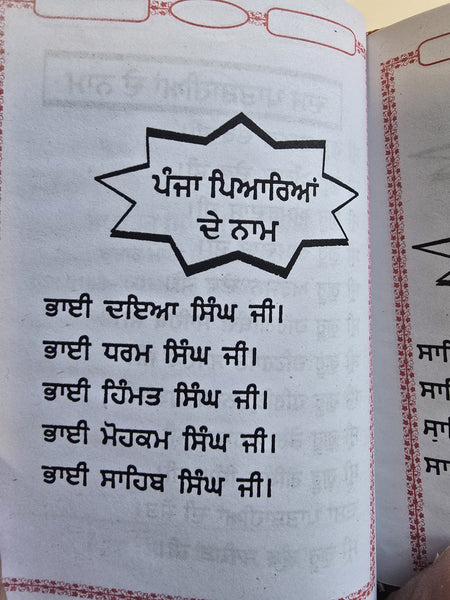 ਪੰਜਾ ਪਿਆਰਿਆਂ
ਦੇ ਨਾਮ
ਭਾਈ ਦਇਆ ਸਿੰਘ ਜੀ।
ਭਾਈ ਧਰਮ ਸਿੰਘ ਜੀ।
ਭਾਈ ਹਿੰਮਤ ਸਿੰਘ ਜੀ।
ਭਾਈ ਮੋਹਕਮ ਸਿੰਘ ਜੀ।
ਭਾਈ ਸਾਹਿਬ ਸਿੰਘ ਜੀ।